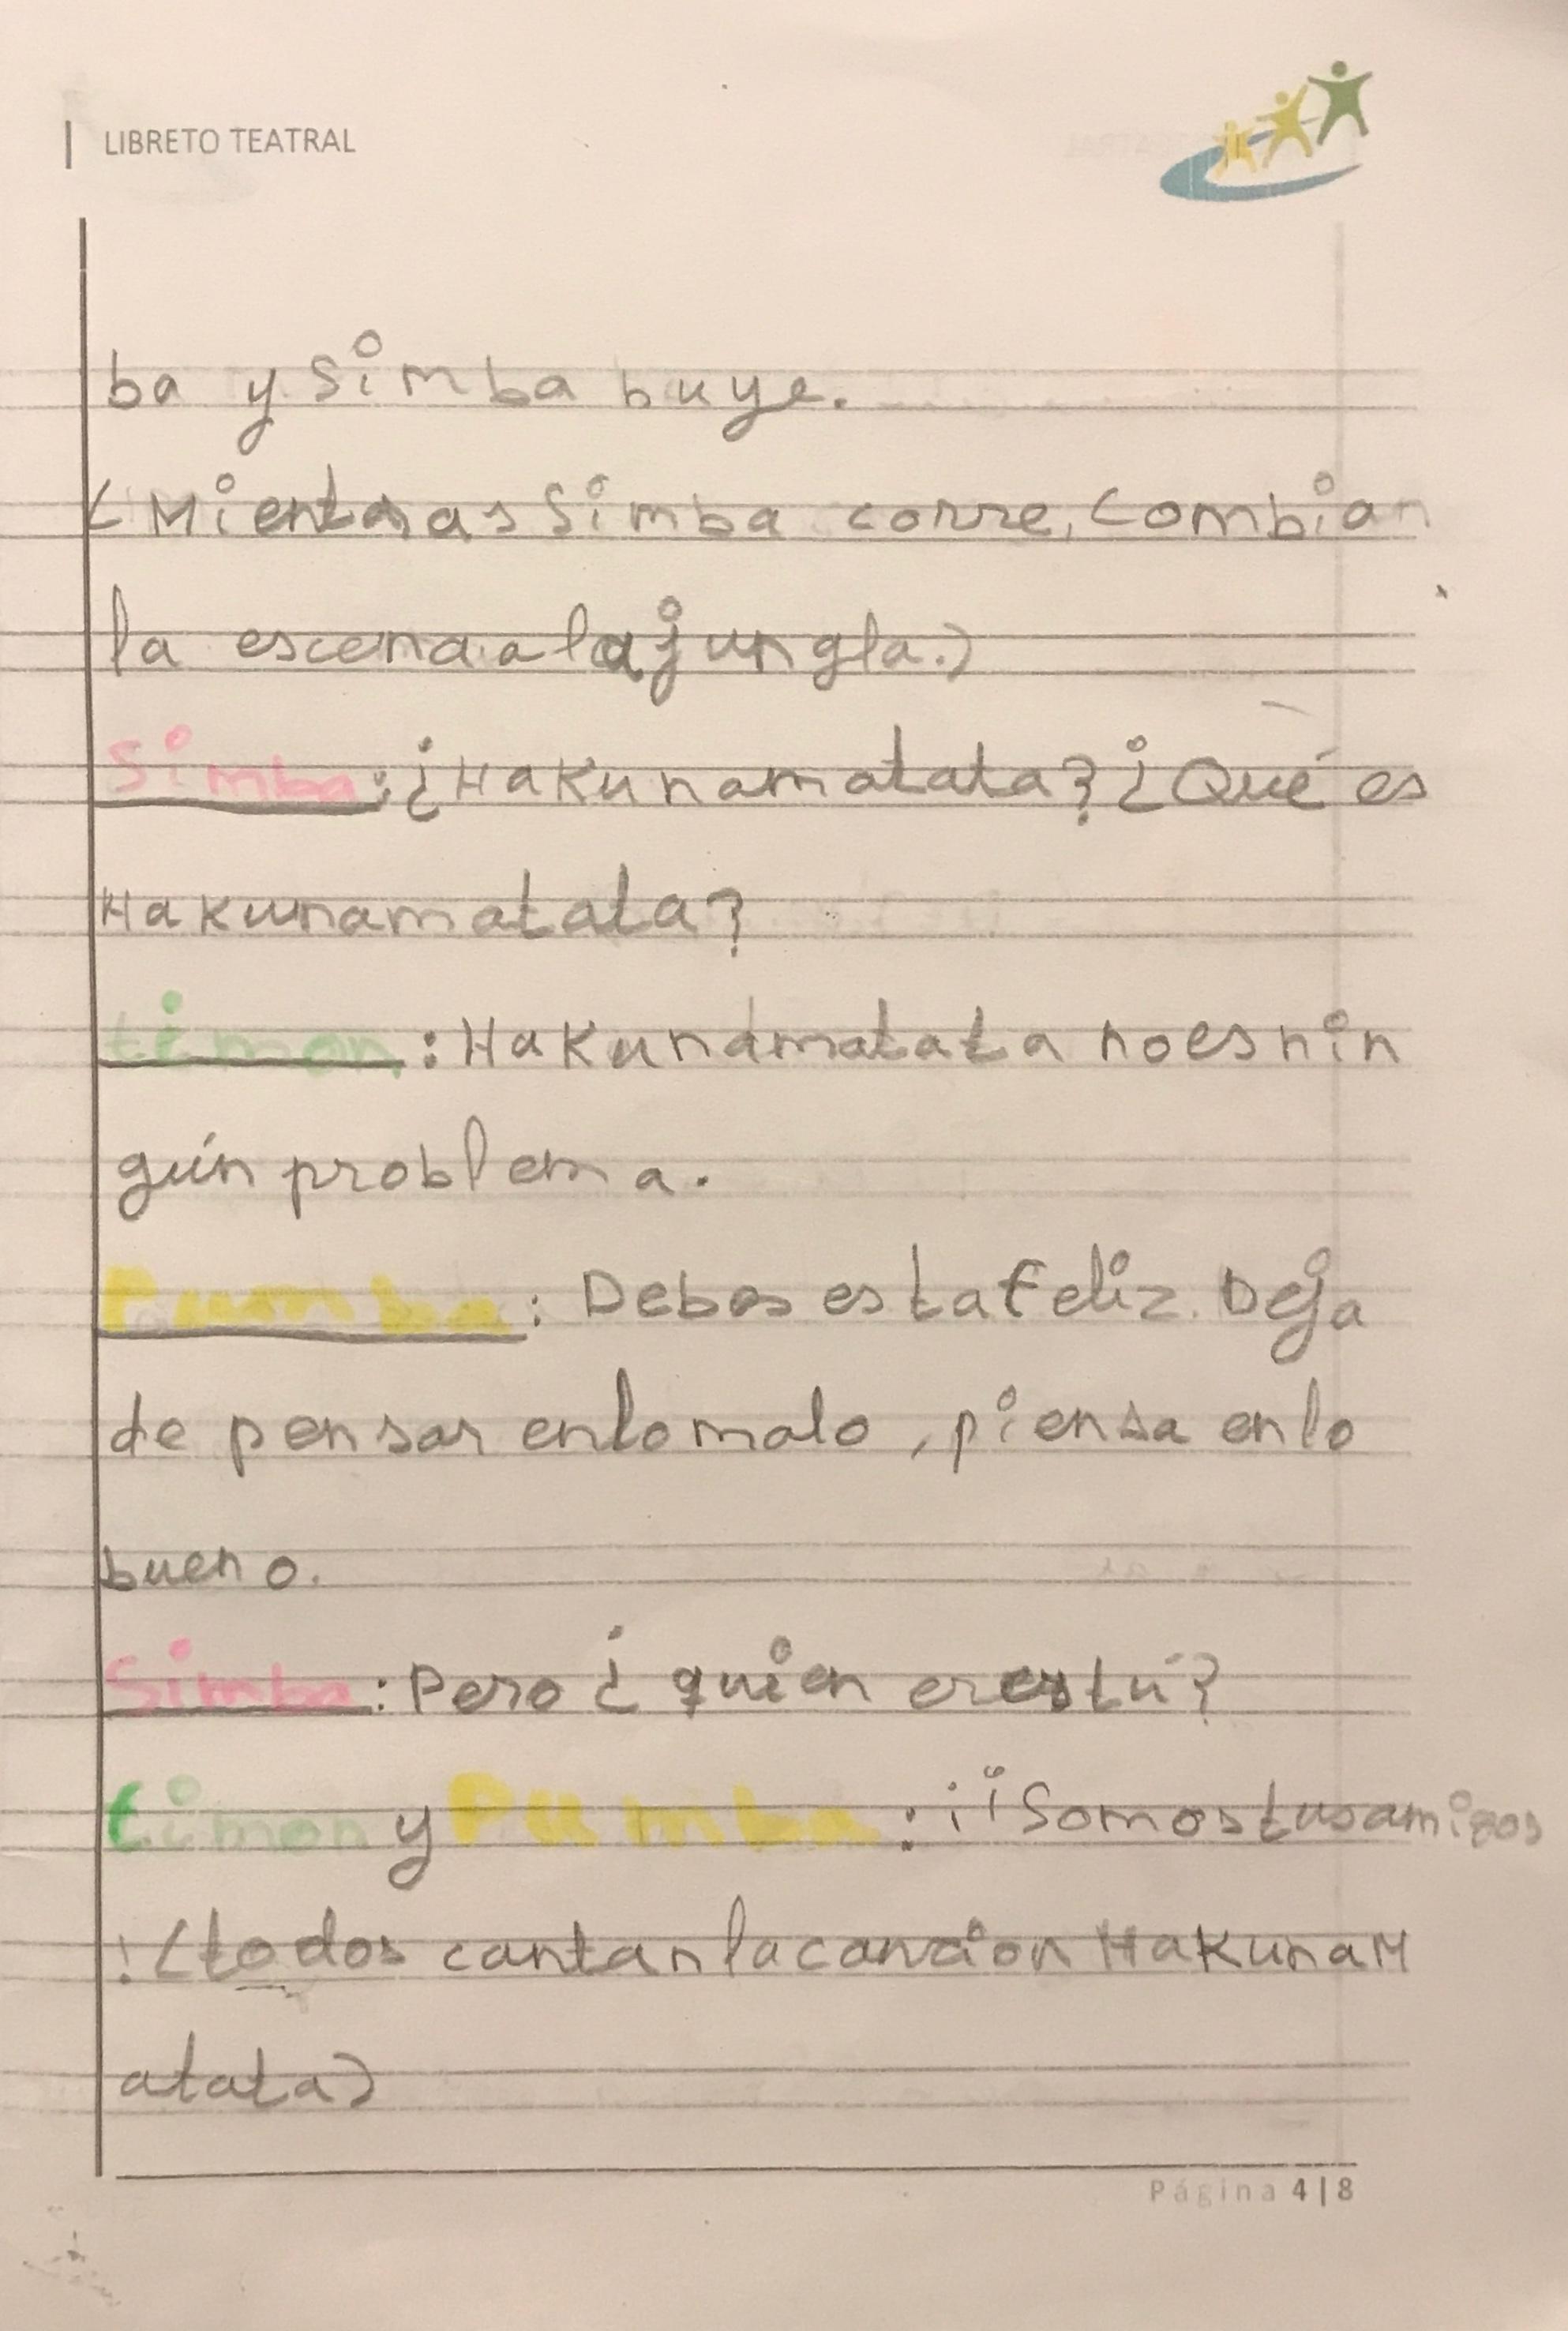 LIBRETO TEATRAL
ba y Simba buye.
(Mientras as Simba corre, Combian
la escena a la jungla.)
Simba: ¿Hakunamatata? ¿Qué es
Hakunamatata?
timon: Hakunamatata no es nin
gún problema.
Pumba: Debes esta feliz. Deja
de pensar en lo malo, piensa en lo
bueno.
Simba: Pero ¿quien eres tú?
timon y Pumba: ¡¡Somos tus amigos
! (todos cantan la cancion Hakuna M
atata)
Página 4|8